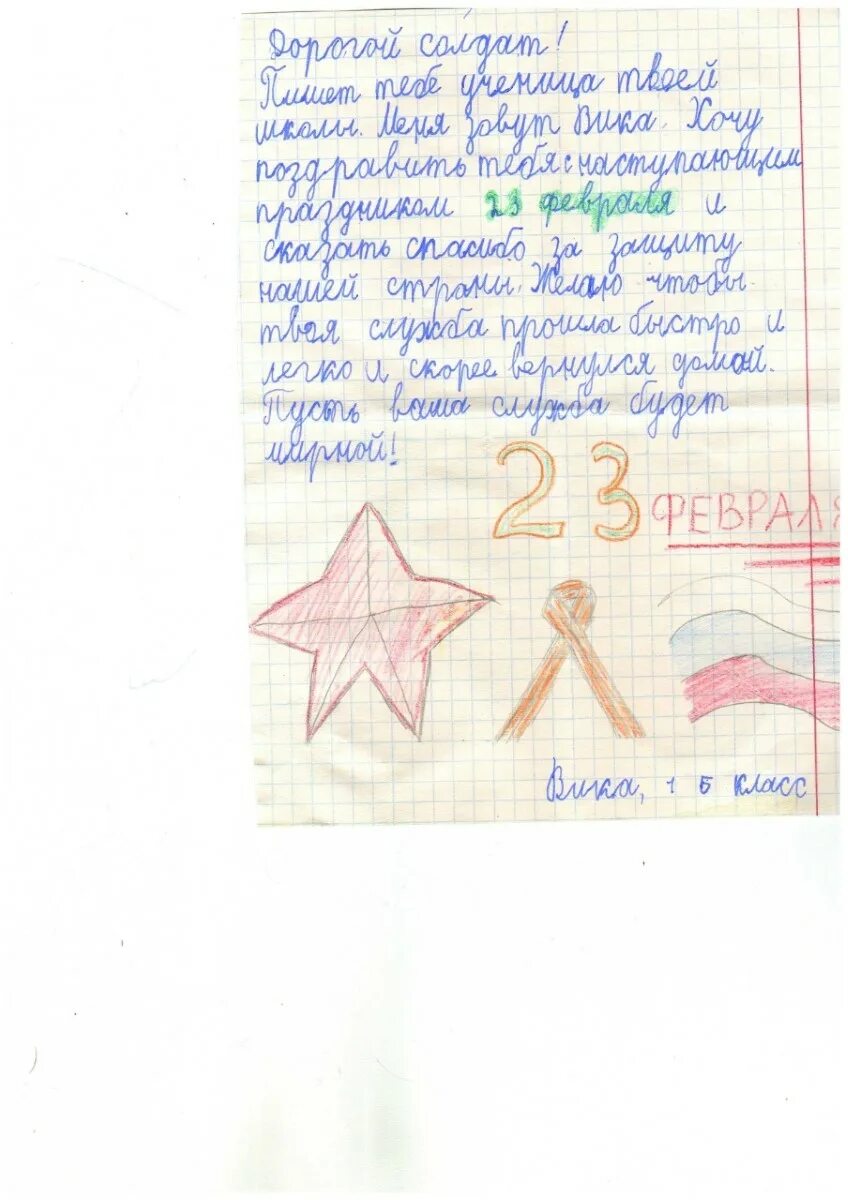 Дорогой солдат!
Пишет тебе ученица твоей
школы. Меня зовут Вика. Хочу
поздравить тебя с наступающим
праздником 23 февраля и
сказать спасибо за защиту
нашей страны. Желаю чтобы
твоя служба прошла быстро и
легко и скорее вернулся домой.
Пусть ваша служба будет
мирной!
23 ФЕВРАЛЯ
Вика, 1 Б класс